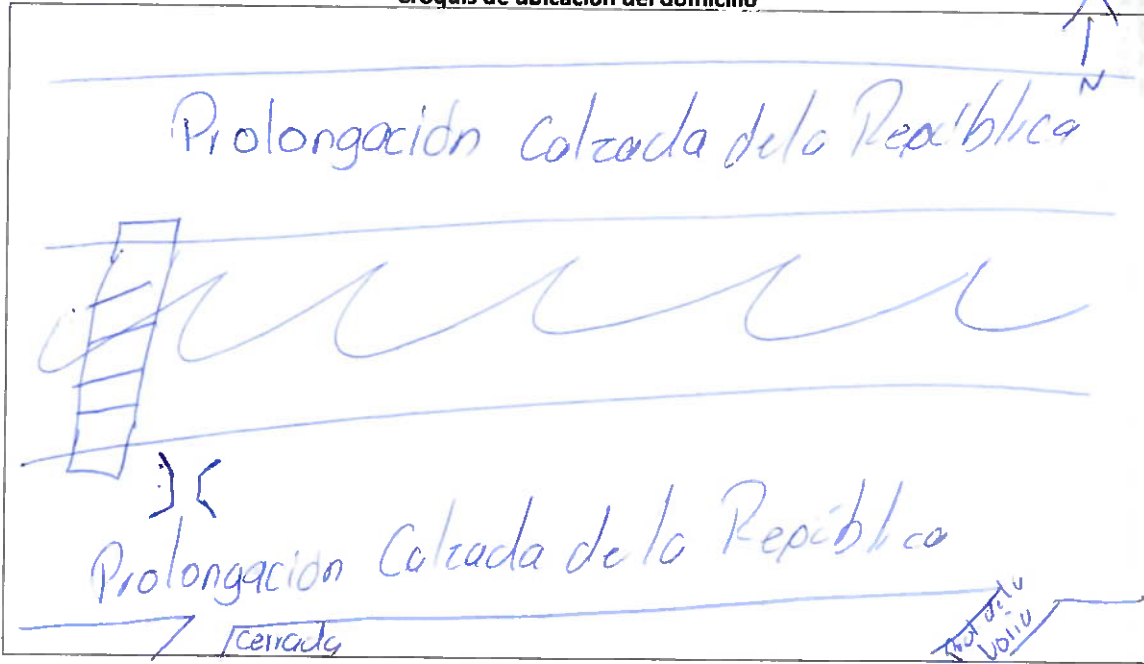 Croquis de ubicación del domicilio
N
Prolongación Calzada de la República
Prolongación Calzada de la República
Cerrada